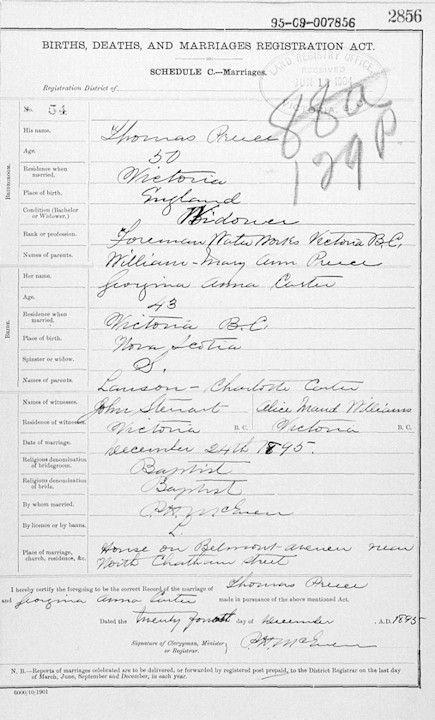 95-09-007856
2856
BIRTHS, DEATHS, AND MARRIAGES REGISTRATION ACT.
SCHEDULE C.—Marriages.
LAND REGISTRY OFFICE
RECEIVED
Registration District of
88a
129P
No. 54
His name. Thomas Preece
Age. 50
Residence when married. Victoria
Place of birth. England
Condition (Bachelor or Widower.) Widower
Rank or profession. Foreman Water Works Victoria B.C.
Names of parents. William - Mary Ann Preece
Her name. Georgina Anna Carter
Age. 43
Residence when married. Victoria B.C.
Place of birth. Nova Scotia
Spinster or widow. S.
Names of parents. Lawson - Charlotte Carter
Names of witnesses. John Stewart Alice Maud Williams
Residence of witnesses. Victoria B.C. Victoria B.C.
Date of marriage. December 24th 1895.
Religious denomination of bridegroom. Baptist
Religious denomination of bride. Baptist
By whom married. P.H. McEwen
By licence or by banns. L
Place of marriage, church, residence, &c. House on Belmont avenue near
North Chatham Street
BRIDEGROOM.
BRIDE.
I hereby certify the foregoing to be the correct Record of the marriage of Thomas Preece
and Georgina Anna Carter made in pursuance of the above mentioned Act.
Dated the twenty fourth day of December A.D. 1895
Signature of Clergyman, Minister, or Registrar. P.H. McEwen
N. B.—Reports of marriages celebrated are to be delivered, or forwarded by registered post prepaid, to the District Registrar on the last day
of March, June, September and December, in each year.
6000/10/1901